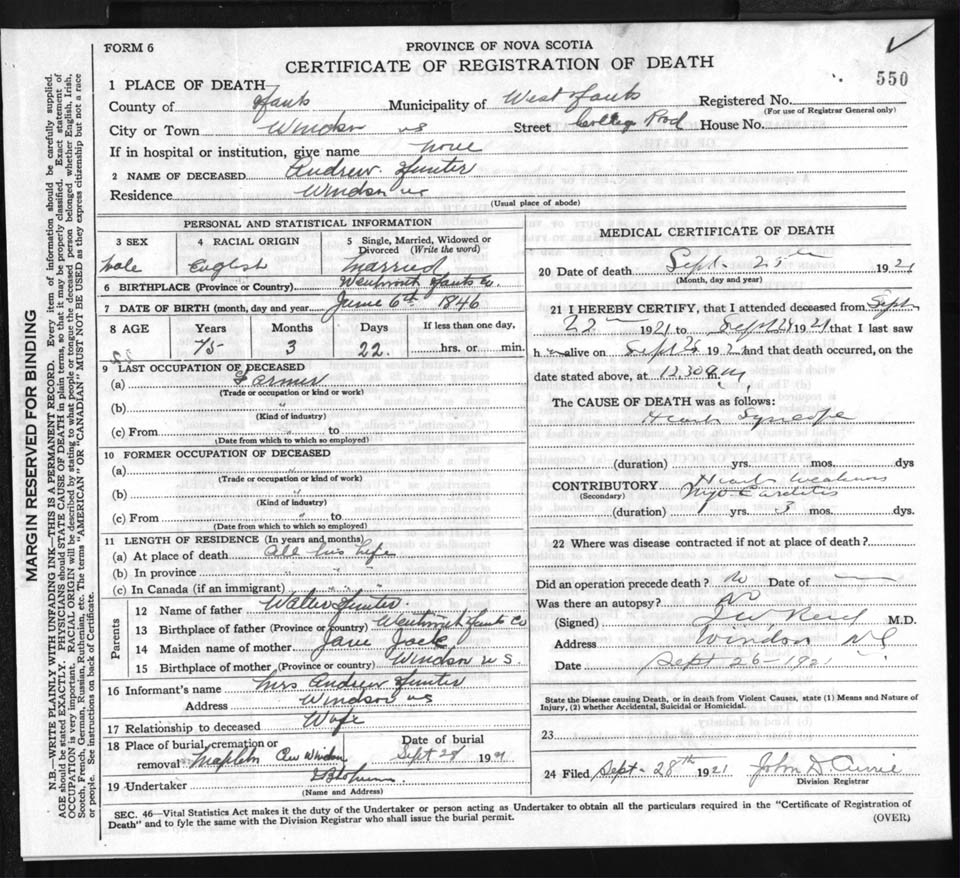 FORM 6
PROVINCE OF NOVA SCOTIA
CERTIFICATE OF REGISTRATION OF DEATH
550
1 PLACE OF DEATH
County of Hants Municipality of West Hants Registered No.
(For use of Registrar General only)
City or Town Windsor NS Street College Road House No.
If in hospital or institution, give name none
2 NAME OF DECEASED Andrew Hunter
Residence Windsor NS
(Usual place of abode)
PERSONAL AND STATISTICAL INFORMATION
3 SEX 4 RACIAL ORIGIN 5 Single, Married, Widowed or Divorced (Write the word)
Male English Married
6 BIRTHPLACE (Province or Country) Wentworth Hants Co.
7 DATE OF BIRTH (month, day and year) June 6th 1846
8 AGE Years Months Days If less than one day,
75 3 22 hrs. or min.
9 LAST OCCUPATION OF DECEASED
(a) Farmer
(Trade or occupation or kind or work)
(b) "
(Kind of industry)
(c) From to
(Date from which to which so employed)
10 FORMER OCCUPATION OF DECEASED
(a) "
(Trade or occupation or kind of work)
(b) "
(Kind of industry)
(c) From " to
(Date from which to which so employed)
11 LENGTH OF RESIDENCE (In years and months)
(a) At place of death All his life
(b) In province " "
(c) In Canada (if an immigrant) " "
Parents
12 Name of father Walter Hunter
13 Birthplace of father (Province or country) Wentworth Hants Co
14 Maiden name of mother Jane
15 Birthplace of mother (Province or country) Windsor NS.
16 Informant's name Mrs Andrew Hunter
Address Windsor NS
17 Relationship to deceased Wife
18 Place of burial, cremation or removal Maplewood Cem Windsor Date of burial Sept 28 1921
19 Undertaker
(Name and Address)
MEDICAL CERTIFICATE OF DEATH
20 Date of death Sept 25th 1921
(Month, day and year)
21 I HEREBY CERTIFY, that I attended deceased from Sept
22 1921 to Sept 1921 that I last saw
h alive on Sept 192 and that death occurred, on
date stated above, at 12.30 a m.
The CAUSE OF DEATH was as follows:
Heart Syncope
(duration) yrs. mos. dys
CONTRIBUTORY Heart weakness
(Secondary) Myocarditis
(duration) yrs. 3 mos. dys.
22 Where was disease contracted if not at place of death?
Did an operation precede death? No Date of
Was there an autopsy? No
(Signed) Reid M.D.
Address Windsor NS
Date Sept 26 - 1921
State the Disease causing Death, or in death from Violent Causes, state (1) Means and Nature of
Injury, (2) whether Accidental, Suicidal or Homicidal.
23
24 Filed Sept. 28th 1921 John D Currie
Division Registrar
SEC. 46—Vital Statistics Act makes it the duty of the Undertaker or person acting as Undertaker to obtain all the particulars required in the "Certificate of Registration of
Death" and to fyle the same with the Division Registrar who shall issue the burial permit.
(OVER)
MARGIN RESERVED FOR BINDING
N.B.—WRITE PLAINLY WITH UNFADING INK—THIS IS A PERMANENT RECORD. Every item of information should be carefully supplied.
AGE should be stated EXACTLY. PHYSICIANS should STATE CAUSE OF DEATH in plain terms, so that it may be properly classified. Exact statement of
OCCUPATION is very important. RACIAL ORIGIN will be described by stating to what people or tongue the deceased person belonged whether English, Irish,
Scotch, French, German, Russian, Ruthenian, etc. The terms "AMERICAN" OR "CANADIAN" MUST NOT BE USED as they express citizenship but not a race
or people. See instructions on back of Certificate.